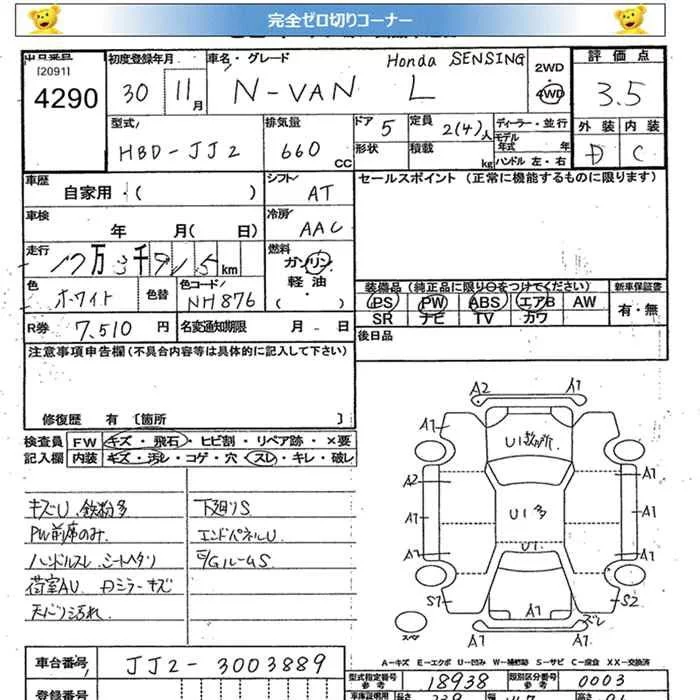 完全ゼロ切りコーナー
出品番号 初度登録年月 車名・グレード Honda SENSING 2WD 評価点
[2091] 4290 30 11月 N-VAN L 4WD 3.5
型式 HBD-JJ2 排気量 660 CC ドア 5 定員 2(4)人 ディーラー・並行 外装 内装
形状 積載 kg モデル年式 年 D C
ハンドル 左・右
車歴 自家用・( ) シフト AT セールスポイント (正常に機能するものに限ります)
車検 年 月( 日) 冷房 AAC
走行 17万3千915km 燃料 ガソリン 軽油 ( ・ )
色 ホワイト 色替 色コード NH876
装備品 (純正品に限り○をつけてください) 新車保証書
PS PW ABS エアB AW 有・無
SR ナビ TV カワ
R券 7,510円 名変通知期限 月 日 後日品
注意事項申告欄(不具合内容等は具体的に記入して下さい)
修復歴 有 〔箇所 〕
検査員 FW キズ・飛石・ヒビ割・リペア跡・×要
記入欄 内装 キズ・汚レ・コゲ・穴・スレ・キレ・破レ
キズU、鉄粉多 下廻りS
PW前席のみ エンドパネルU
ハンドルスレ シートヘタリ E/GルームS
荷室AU Dミラーキズ
天バリ汚れ
A2 A1
A1 A1
U1数ヶ所
A2 A1
A1 U1多 A1
A1 U1 A1
S1 A1 S2
スペア A1 スレ A1
A-キズ E-エクボ U-凹み W-補修跡 S-サビ C-腐食 XX-交換済
車台番号 JJ2-3003889 型式指定番号 参考 18938 類別区分番号 参考 0003
登録番号 車庫証明用 長さ 幅 高さ